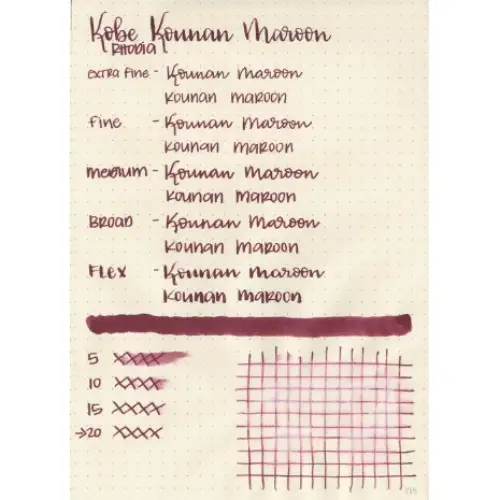 Kobe Kounan Maroon
RHODIA
EXTRA FINE - Kounan Maroon
KOUNAN MAROON
FINE - Kounan Maroon
KOUNAN MAROON
MEDIUM - Kounan Maroon
KOUNAN MAROON
BROAD - Kounan Maroon
KOUNAN MAROON
FLEX - Kounan Maroon
KOUNAN MAROON
5 XXXX
10 XXXX
15 XXXX
→20 XXXX